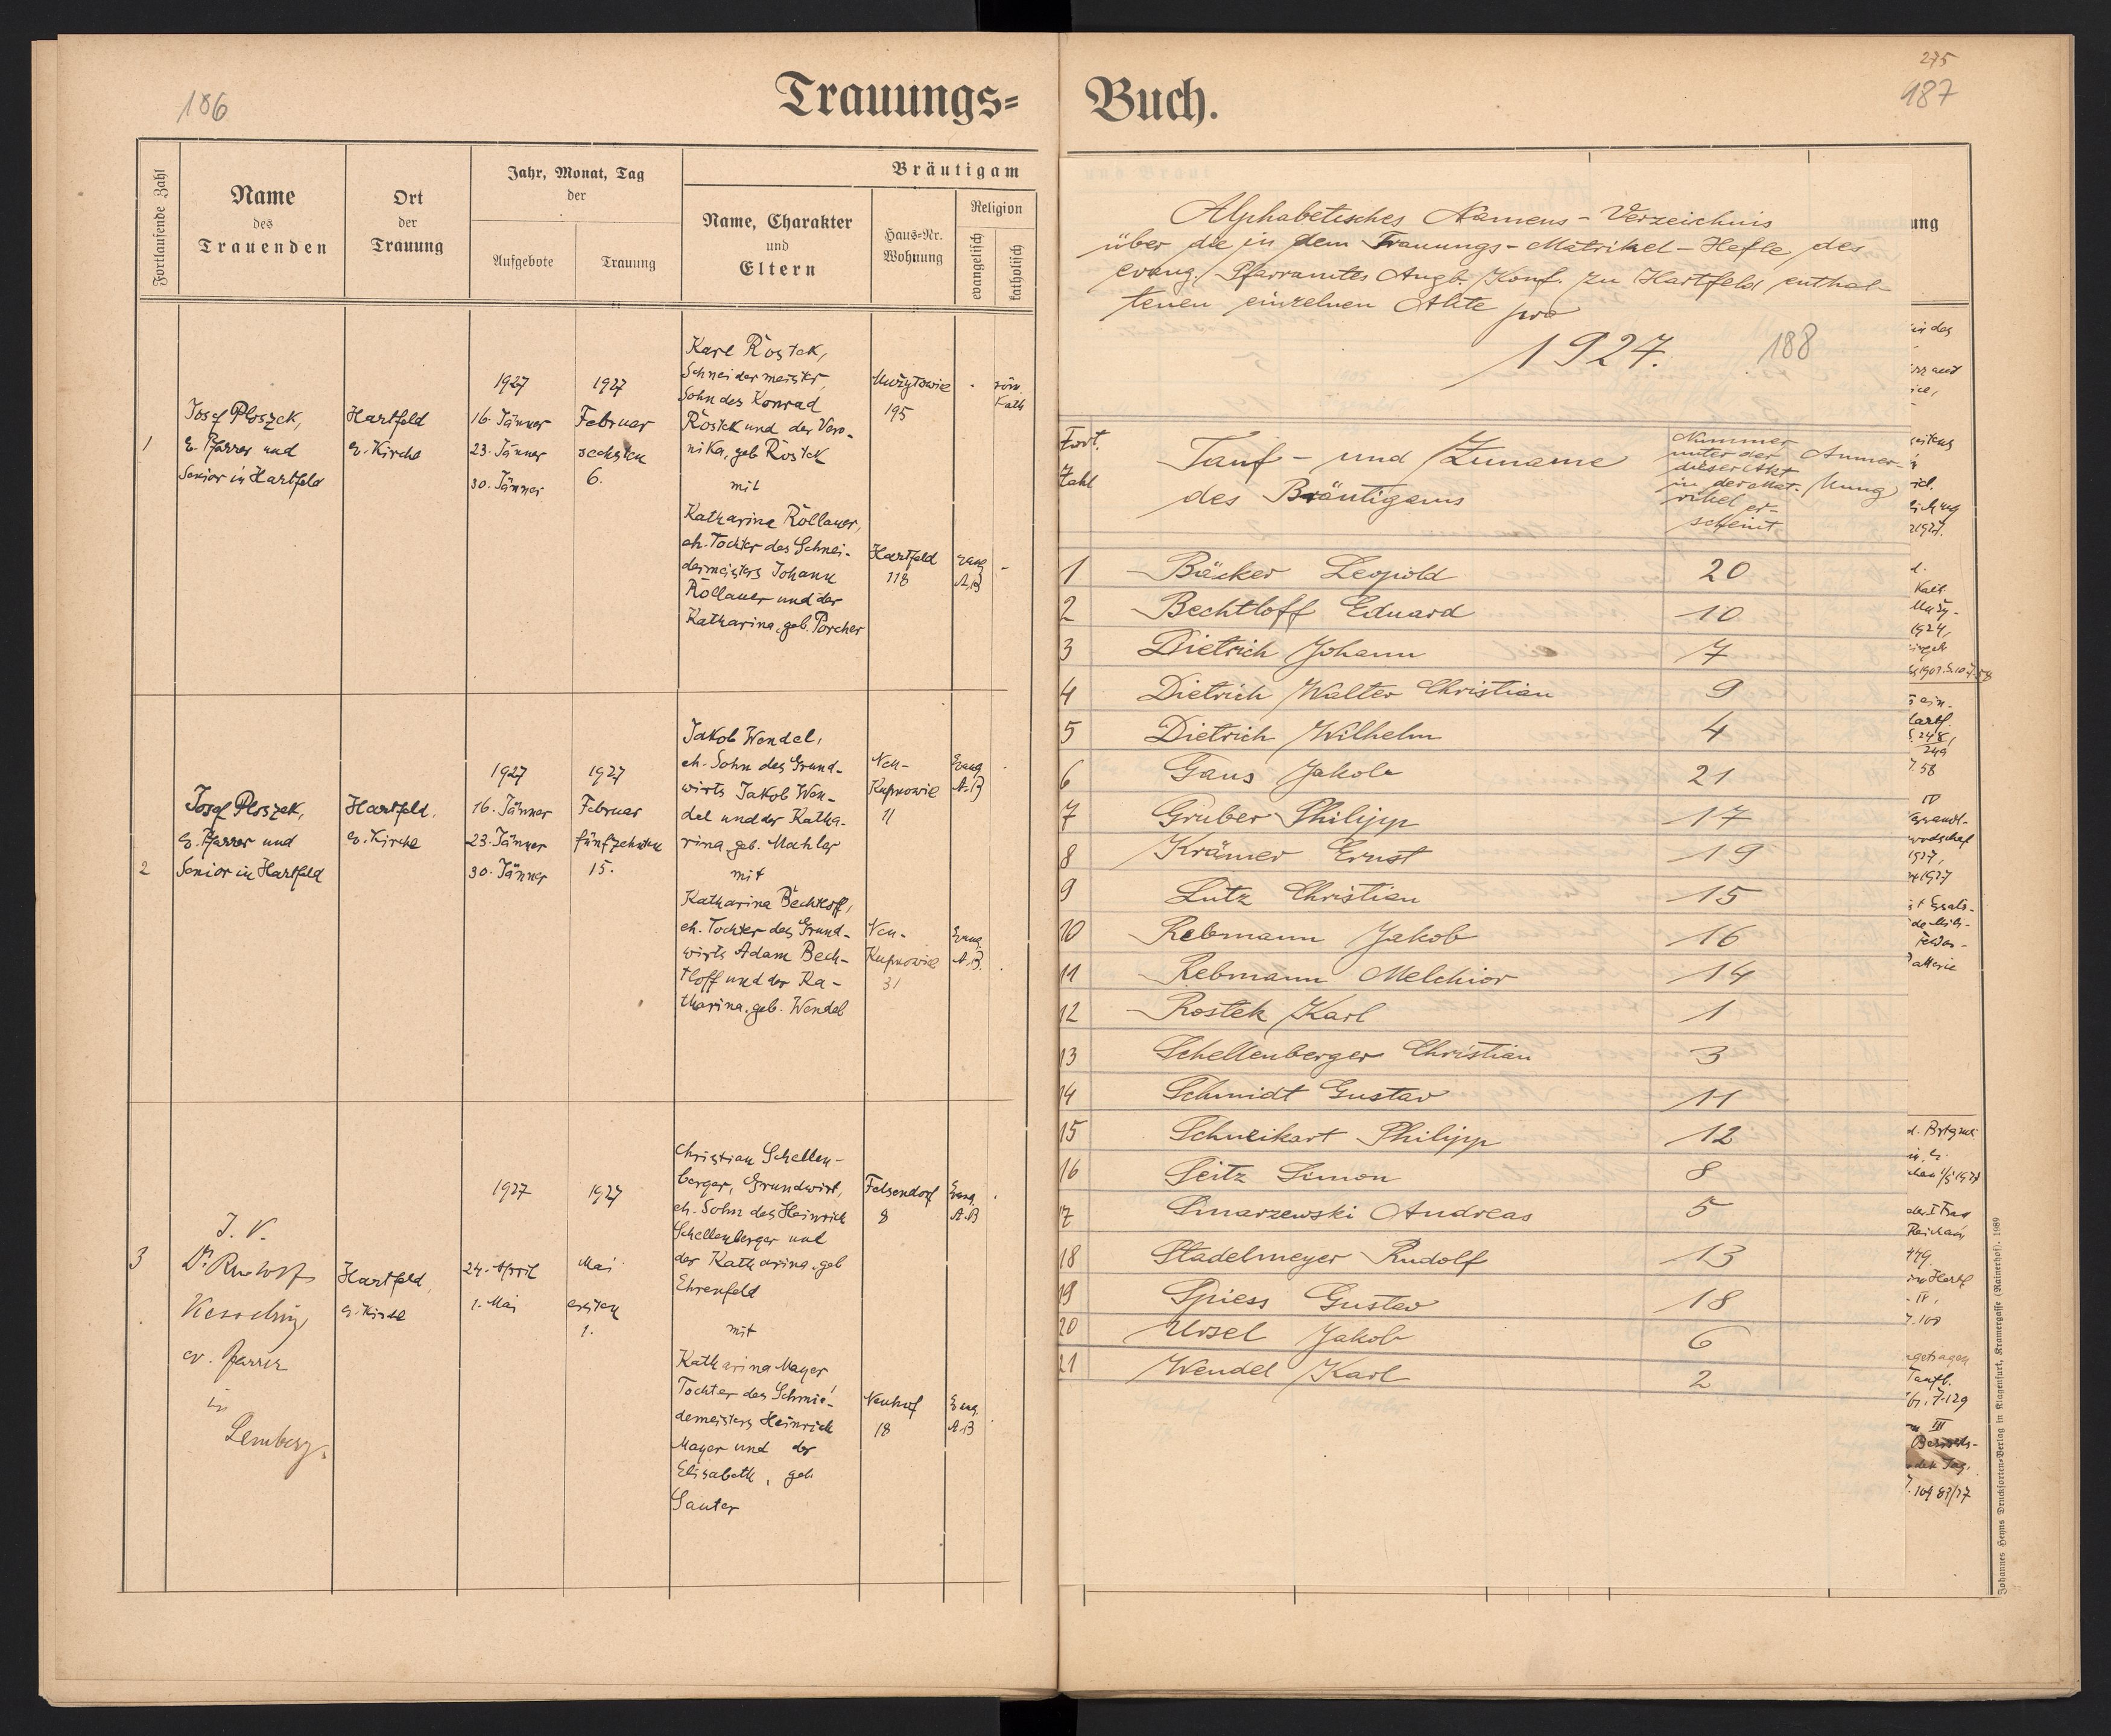 186
Trauungs=
Fortlaufende Zahl
Name
des
Trauenden
Ort
der
Trauung
Jahr, Monat, Tag
der
Aufgebote
Trauung
Bräutigam
Name, Charakter
und
Eltern
Haus=Nr.
Wohnung
Religion
evangelisch
katholisch
1
Josef Ploszek,
E. Pfarrer und
Senior in Hartfeld
Hartfeld
ev. Kirche
1927
16. Jänner
23. Jänner
30. Jänner
1927
Februar
sechsten
6.
Karl Rostek,
Schneidermeister
Sohn des Konrad
Rostek und der Vero-
nika, geb Rostek
mit
Katharina Rollauer,
eh. Tochter des Schnei-
dermeisters Johann
Rollauer und der
Katharina, geb. Porcher
195
röm.
Kath
Hartfeld
118
Evang
A.B
2
Josef Ploszek,
E. Pfarrer und
Senior in Hartfeld
Hartfeld,
ev. Kirche
1927
16. Jänner
23. Jänner
30. Jänner
1927
Februar
fünfzehnten
15.
Jakob Wendel,
eh. Sohn des Grund-
wirts Jakob Wen-
del und der Katha-
rina, geb. Machler
mit
Katharina Bechtloff,
eh. Tochter des Grund-
wirts Adam Bech-
tloff und der Ka-
tharina, geb. Wendel
Neu-
Kupnowice
11
Evang
A.B
Neu-
Kupnowice
31
Evang.
A.B.
3
J. V.
Dr Rudolf
Kesselring
ev. Pfarrer
in
Lemberg.
Hartfeld,
ev. Kirche
1927
24. April
1. Mai
1927
Mai
ersten
1.
Christian Schellen-
berger, Grundwirt,
eh. Sohn des Heinrich
Schellenberger und
der Katharina, geb
Ehrenfeld
mit
Katharina Mayer
Tochter des Schmie-
demeisters Heinrich
Mayer und der
Elisabeth, geb
Sauter
Felsendorf
8
Evang
A.B
Neuhof
18
Evang.
A.B
Buch.
275
187
Alphabetisches Namens-Verzeichnis
über die in dem Trauungs-Matrikel-Hefte des
evang. Pfarramtes Augb. Konf. zu Hartfeld enthal-
tenen einzelnen Akte pro
1927.
188
Fort.
Zahl
Tauf- und Zuname
des Bräutigams
Nummer
unter der
dieser Akt
in der Mat-
rikel er-
scheint
Anmer-
kung
1 Bäcker Leopold 20
2 Bechtloff Eduard 10
3 Dietrich Johann 7
4 Dietrich Walter Christian 9
5 Dietrich Wilhelm 4
6 Gaus Jakob 21
7 Gruber Philipp 17
8 Krämer Ernst 19
9 Lutz Christian 15
10 Rebmann Jakob 16
11 Rebmann Melchior 14
12 Rostek Karl 1
13 Schellenberger Christian 3
14 Schmidt Gustav 11
15 Schweikart Philipp 12
16 Seitz Simon 8
17 Smarzewski Andreas 5
18 Stadelmeyer Rudolf 13
19 Spiess Gustav 18
20 Ursel Jakob 6
21 Wendel Karl 2
ung
Johannes Heyns Drucksorten=Verlag in Klagenfurt, Kramergasse (Rainerhof). 1989